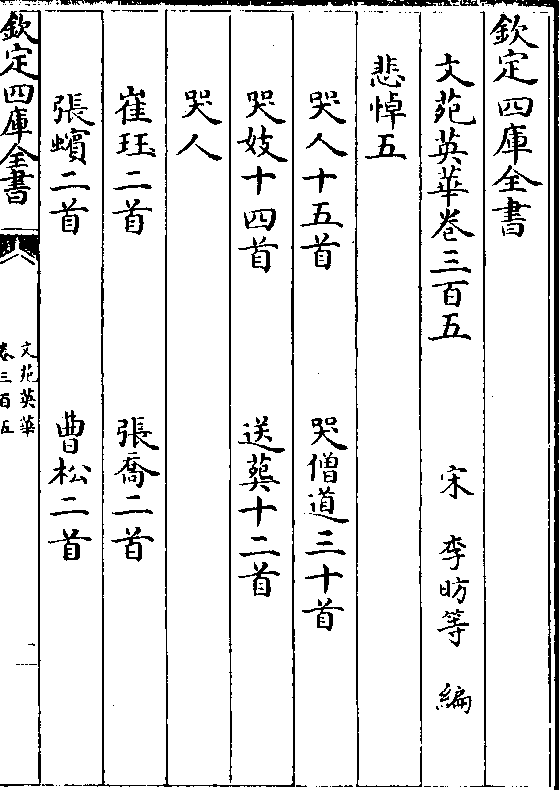 欽定四庫全書
文苑英華卷三百五
宋 李昉等 編
悲悼五
哭人十五首 哭僧道三十首
哭妓十四首 送葬十二首
哭人
崔珏二首 張喬二首
張蠙二首 曹松二首
欽定四庫全書
文苑英華
卷三百五